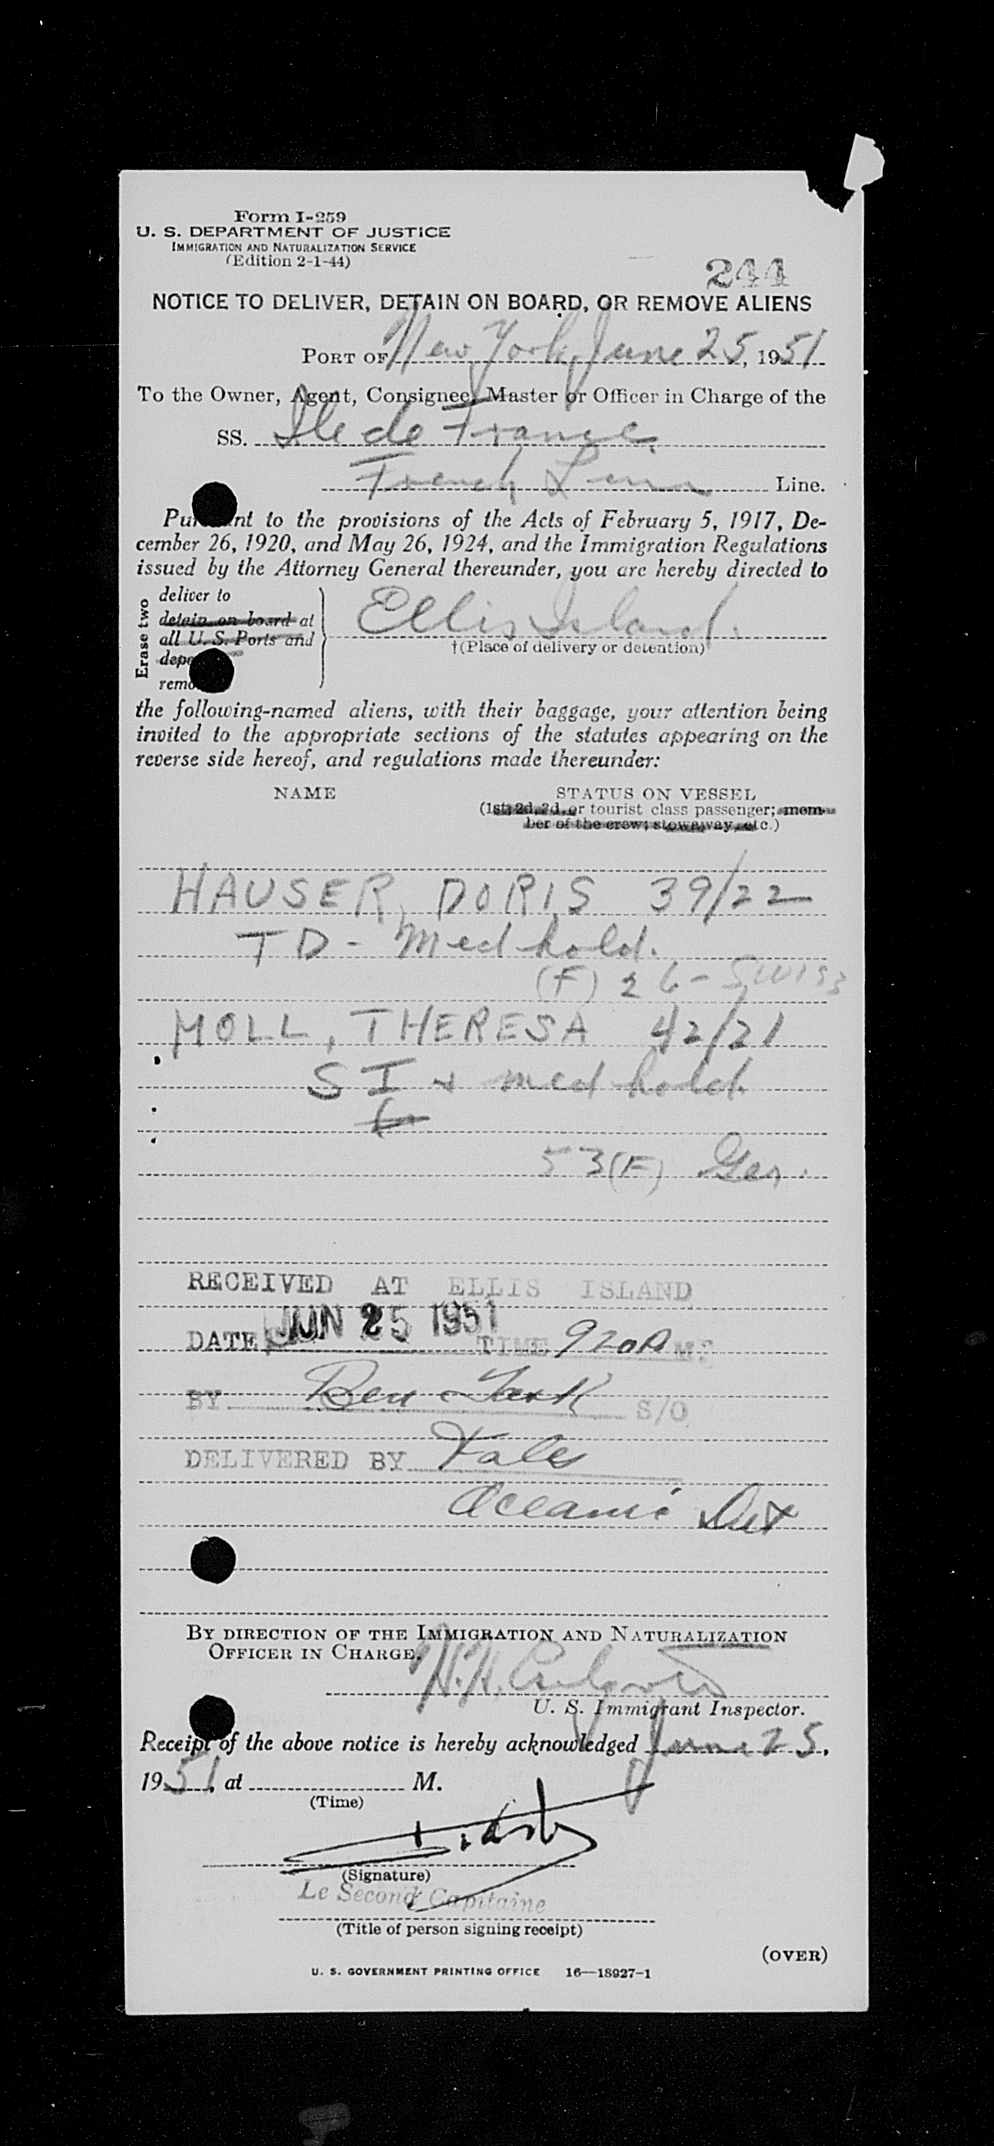 Form I-259
U. S. DEPARTMENT OF JUSTICE
IMMIGRATION AND NATURALIZATION SERVICE
(Edition 2-1-44)
244
NOTICE TO DELIVER, DETAIN ON BOARD, OR REMOVE ALIENS
PORT OF New York, June 25, 1951
To the Owner, Agent, Consignee, Master or Officer in Charge of the
SS. Ile de France
French Line Line.
Pursuant to the provisions of the Acts of February 5, 1917, De-
cember 26, 1920, and May 26, 1924, and the Immigration Regulations
issued by the Attorney General thereunder, you are hereby directed to
Erase two
deliver to
detain on board at
all U. S. Ports and
Ellis Island.
†(Place of delivery or detention)
the following-named aliens, with their baggage, your attention being
invited to the appropriate sections of the statutes appearing on the
reverse side hereof, and regulations made thereunder:
NAME STATUS ON VESSEL
(1st, 2d, 3d, or tourist class passenger; mem-
ber of the crew; stowaway, etc.)
HAUSER, DORIS 39/22
TD - Med hold.
(F) 26 - SWISS
MOLL, THERESA 42/21
SI & med hold.
53 (F) Ger.
RECEIVED AT ELLIS ISLAND
DATE JUN 25 1951 TIME 920A M.
BY Ben S/O
DELIVERED BY
Oceanic Det
BY DIRECTION OF THE IMMIGRATION AND NATURALIZATION
OFFICER IN CHARGE.
U. S. Immigrant Inspector.
Receipt of the above notice is hereby acknowledged June 25,
1951, at M.
(Time)
(Signature)
Le Second Capitaine
(Title of person signing receipt)
(OVER)
U. S. GOVERNMENT PRINTING OFFICE 16—18927-1